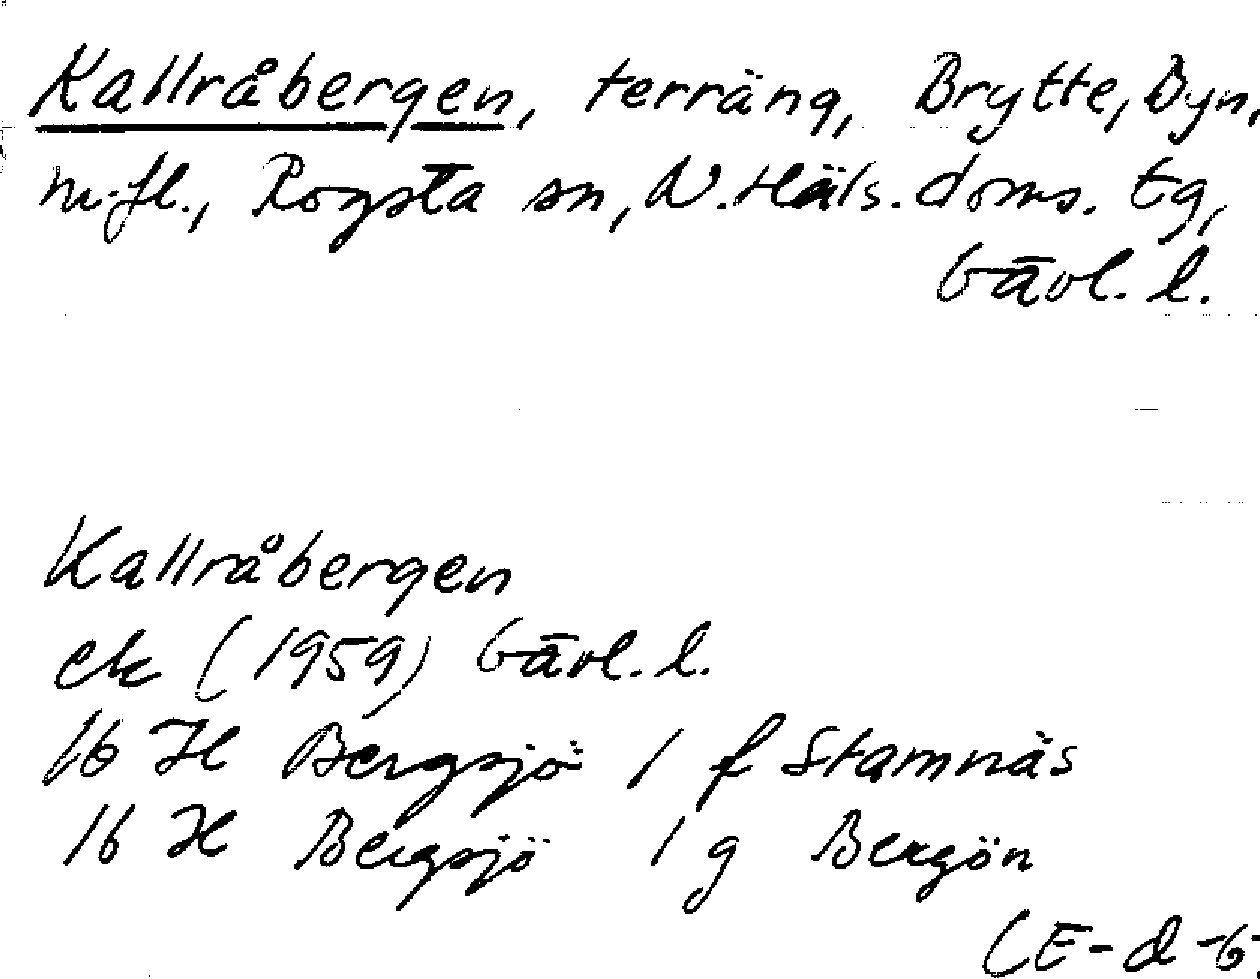 Kallråbergen, terräng, Brytte, Dyn,
m.fl., Rogsta sn, N. Häls. doms. tg,
Gävl. l.
Kallråbergen
ek (1959) Gävl. l.
16 H Bergsjö 1 f Stamnäs
16 H Bergsjö 1 g Bergön
(E-d-6-